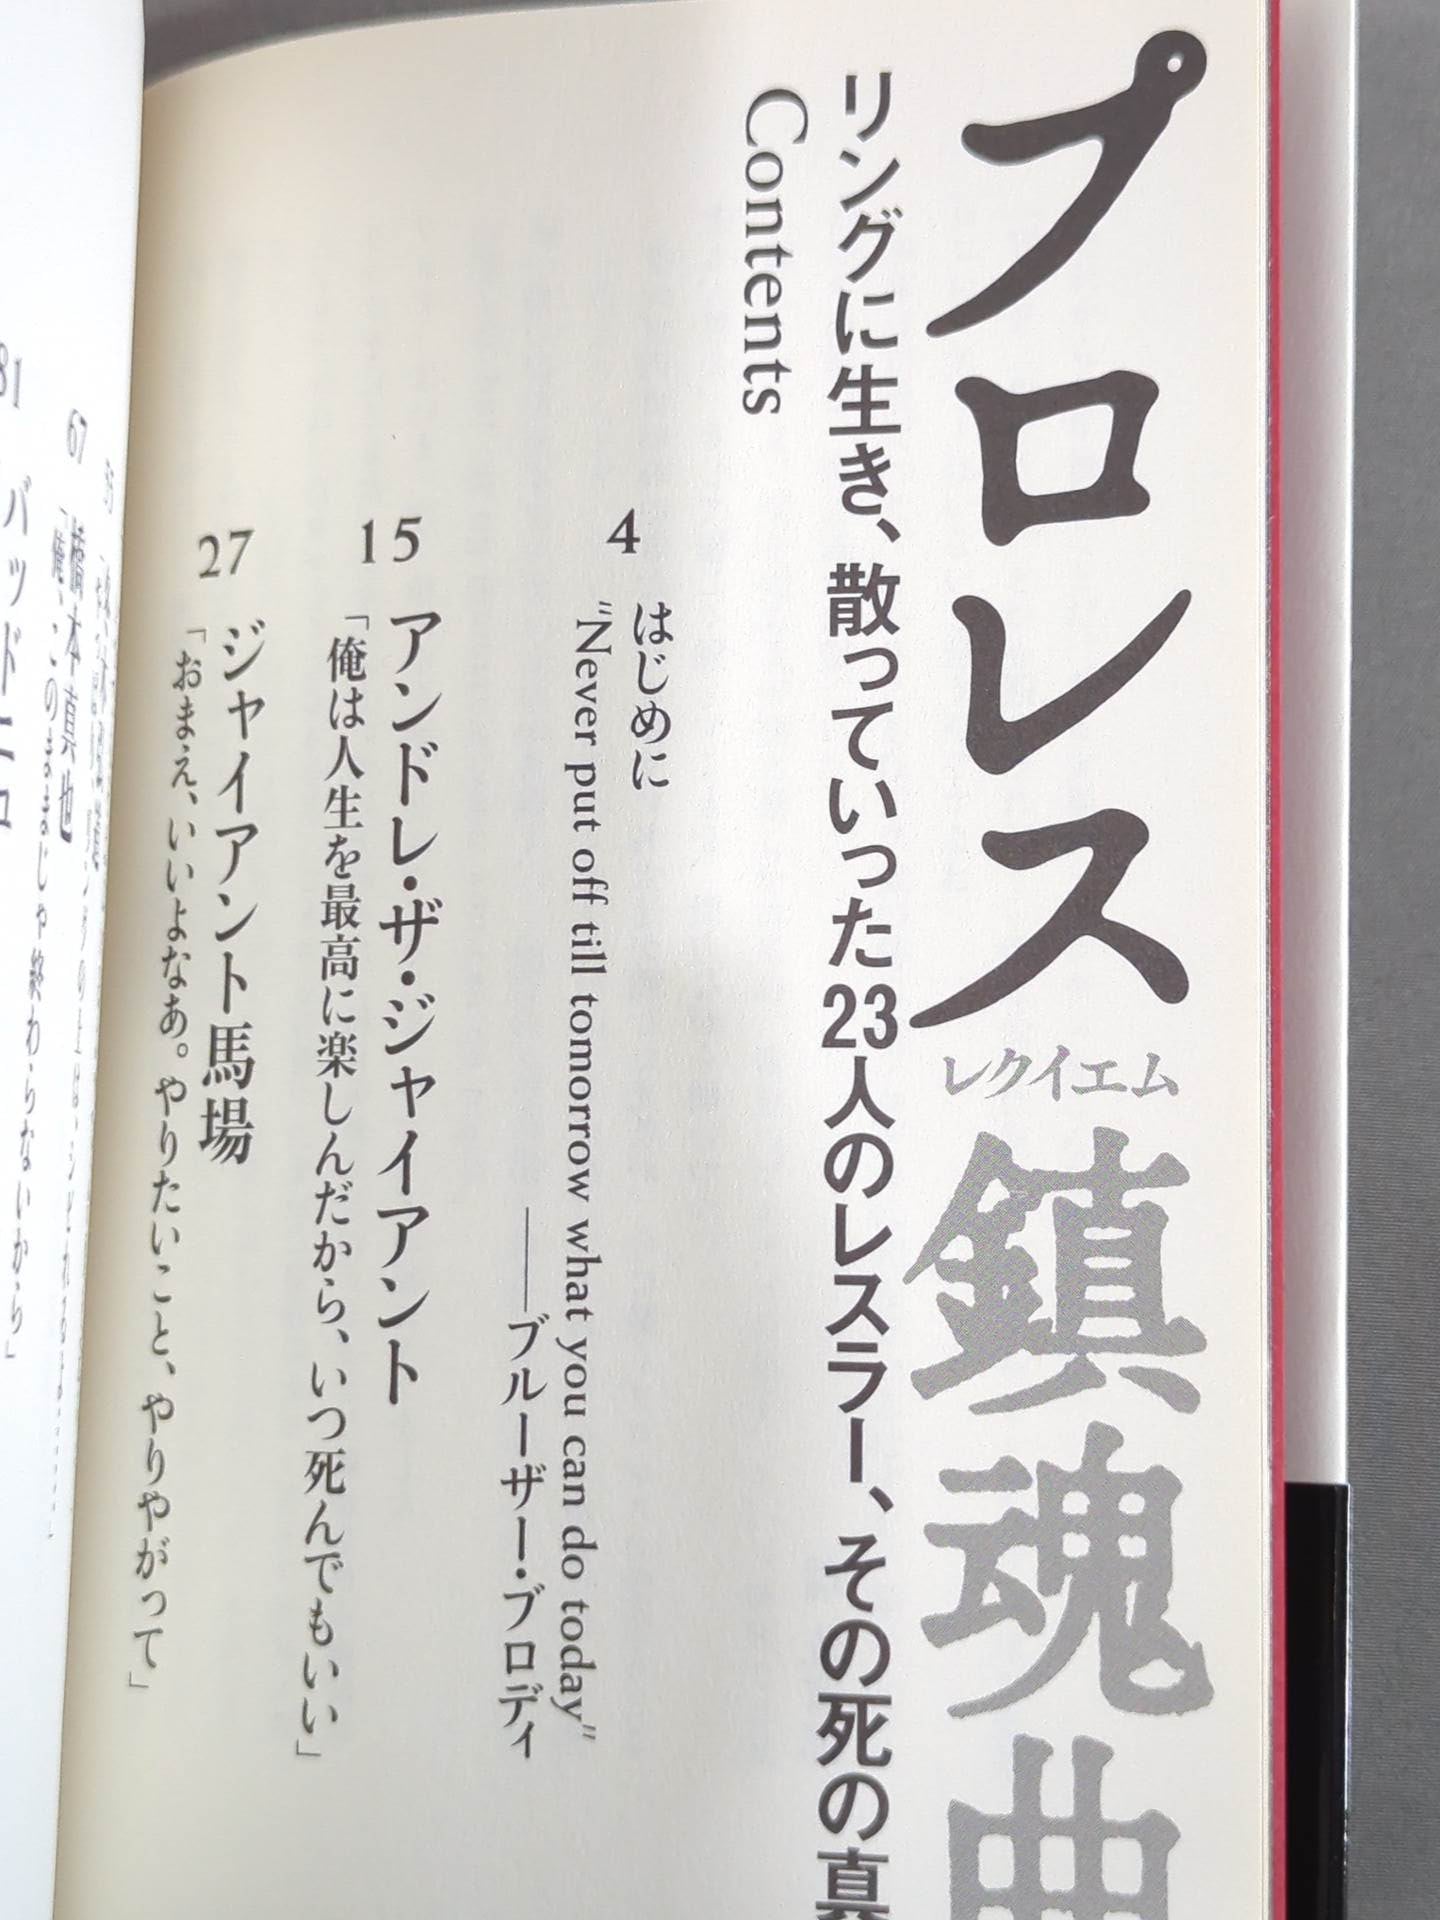 プロレス鎮魂曲
レクイエム
リングに生き、散っていった23人のレスラー、その死の真
Contents
4
はじめに
"Never put off till tomorrow what you can do today"
――ブルーザー・ブロディ
15
アンドレ・ザ・ジャイアント
「俺は人生を最高に楽しんだから、いつ死んでもいい」
27
ジャイアント馬場
「おまえ、いいよなあ。やりたいこと、やりやがって」
67
橋本真也
「俺、このままじゃ終わらないから」
81
バッドニュ